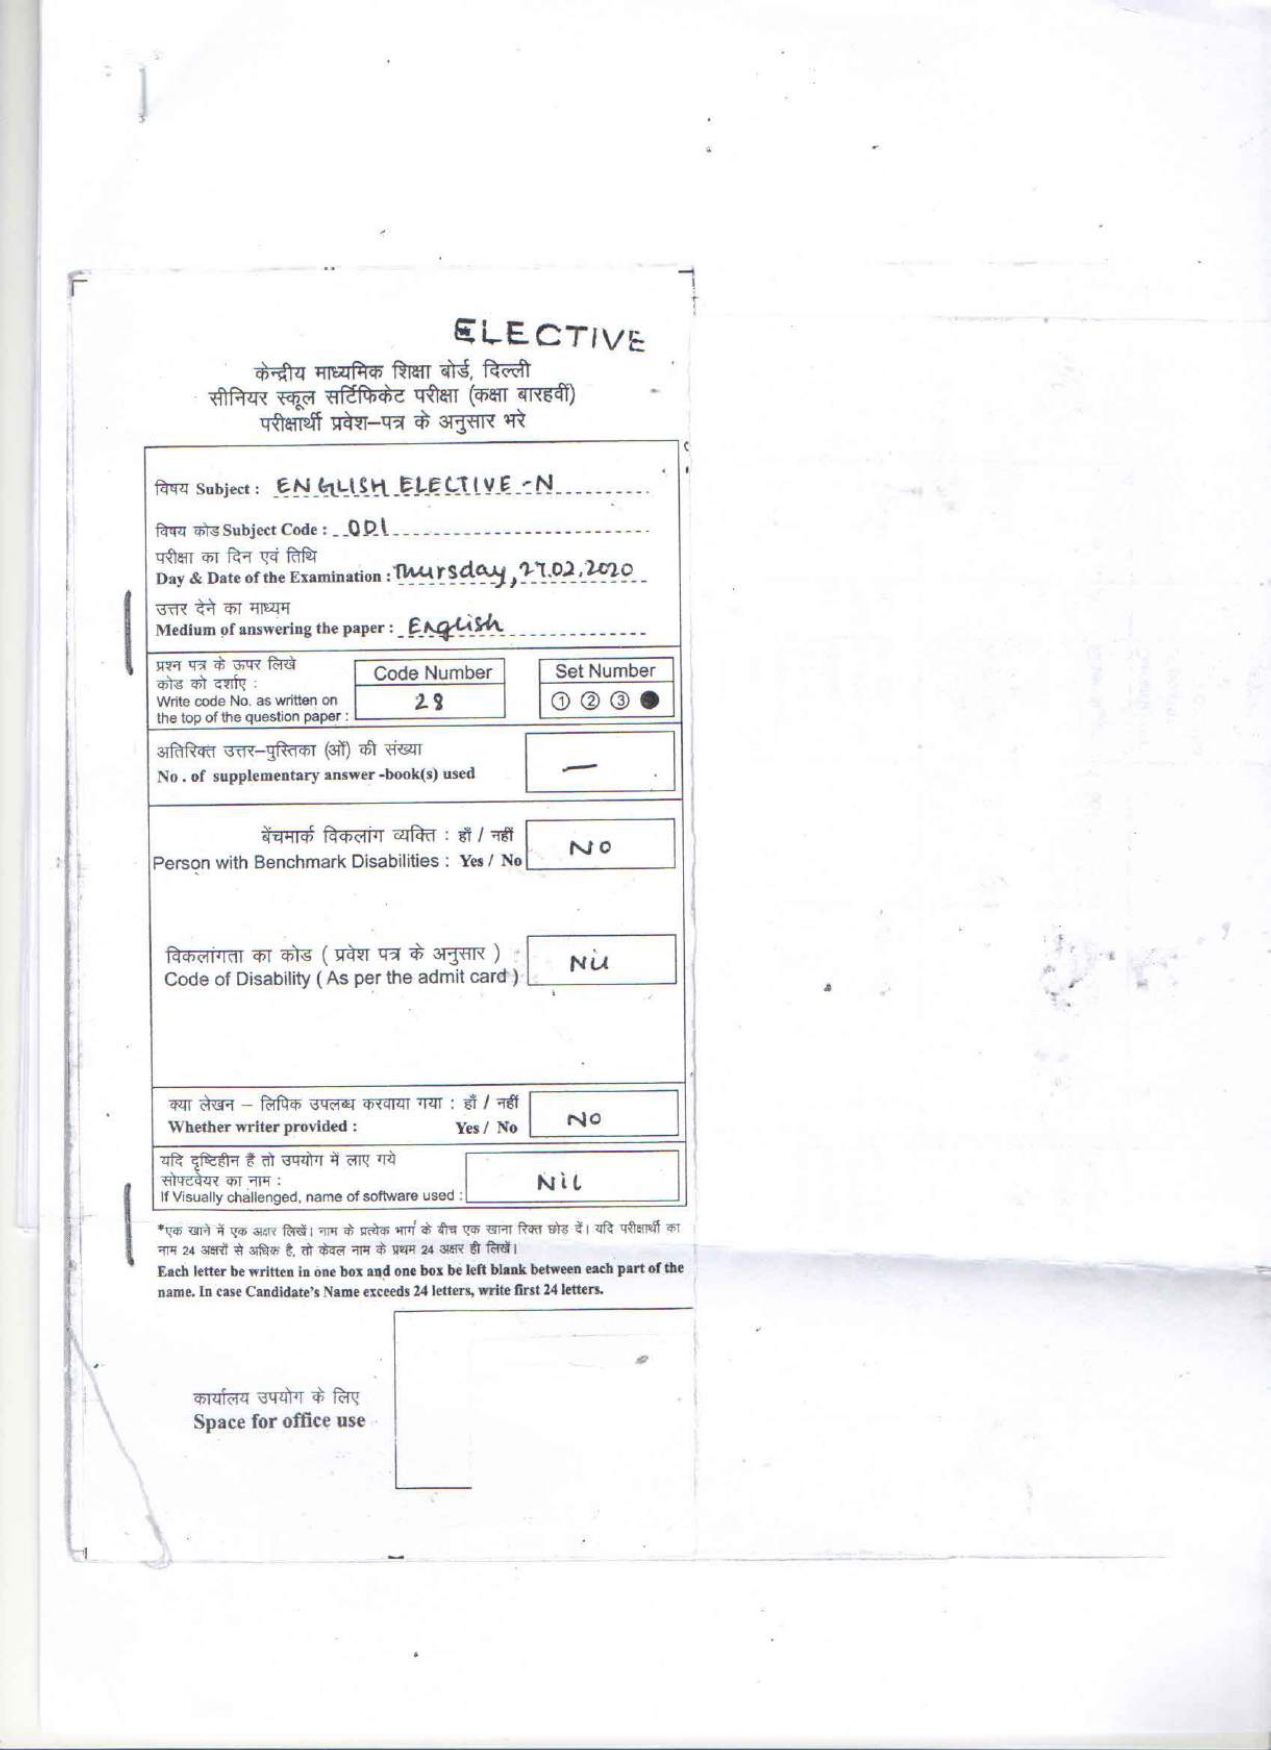 ELECTIVE
केन्द्रीय माध्यमिक शिक्षा बोर्ड, दिल्ली
सीनियर स्कूल सर्टिफिकेट परीक्षा (कक्षा बारहवीं)
परीक्षार्थी प्रवेश–पत्र के अनुसार भरे
विषय Subject : ENGLISH ELECTIVE -N
विषय कोड Subject Code : 001
परीक्षा का दिन एवं तिथि
Day & Date of the Examination : Thursday, 27.02.2020
उत्तर देने का माध्यम
Medium of answering the paper : English
प्रश्न पत्र के ऊपर लिखे
कोड को दर्शाए :
Write code No. as written on
the top of the question paper :
Code Number
28
Set Number
① ② ③ ●
अतिरिक्त उत्तर–पुस्तिका (ओं) की संख्या
No . of supplementary answer -book(s) used
—
बेंचमार्क विकलांग व्यक्ति : हाँ / नहीं
Person with Benchmark Disabilities : Yes / No
NO
विकलांगता का कोड ( प्रवेश पत्र के अनुसार ) :
Code of Disability ( As per the admit card )
Nil
क्या लेखन – लिपिक उपलब्ध करवाया गया : हाँ / नहीं
Whether writer provided : Yes / No
NO
यदि दृष्टिहीन हैं तो उपयोग में लाए गये
सोफ्टवेयर का नाम :
If Visually challenged, name of software used :
Nil
*एक खाने में एक अक्षर लिखें। नाम के प्रत्येक भाग के बीच एक खाना रिक्त छोड दें। यदि परीक्षार्थी का
नाम 24 अक्षरों से अधिक है, तो केवल नाम के प्रथम 24 अक्षर ही लिखें।
Each letter be written in one box and one box be left blank between each part of the
name. In case Candidate's Name exceeds 24 letters, write first 24 letters.
कार्यालय उपयोग के लिए
Space for office use